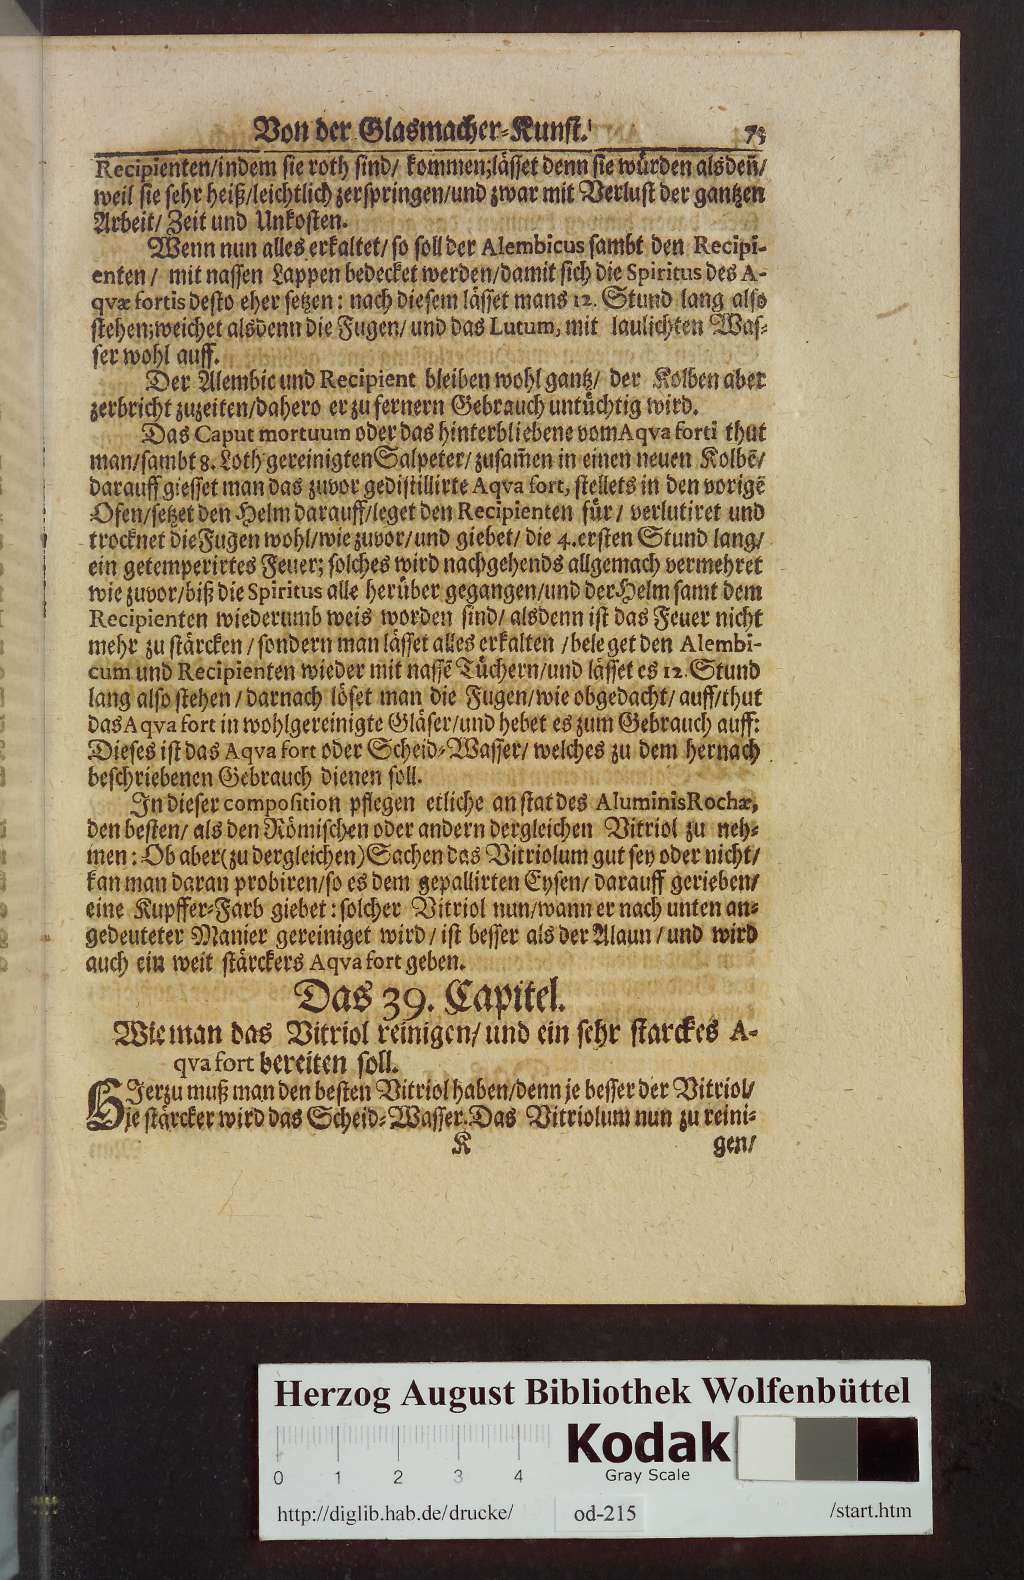 Von der Glasmacher-Kunst. 73
Recipienten/indem sie roth sind/ kommen;lässet denn sie würden alsdeñ/
weil sie sehr heiß/leichtlich zerspringen/und zwar mit Verlust der gantzen
Arbeit/ Zeit und Unkosten.
Wenn nun alles erkaltet/ so soll der Alembicus sambt den Recipi-
enten/ mit nassen Lappen bedecket werden/damit sich die Spiritus des A-
qvæ fortis desto eher setzen: nach diesem lässet mans 12. Stund lang also
stehen;weichet alsdenn die Fugen/ und das Lutum, mit laulichten Was-
ser wohl auff.
Der Alembic und Recipient bleiben wohl gantz/ der Kolben aber
zerbricht zuzeiten/dahero er zu fernern Gebrauch untüchtig wird.
Das Caput mortuum oder das hinterbliebene vom Aqva forti thut
man/sambt 8. Loth gereinigten Salpeter/ zusam̃en in einen neuen Kolbẽ/
darauff giesset man das zuvor gedistillirte Aqva fort, stellets in den vorigẽ
Ofen/setzet den Helm darauff/leget den Recipienten für/ verlutiret und
trocknet die Fugen wohl/wie zuvor/und giebet/ die 4. ersten Stund lang/
ein getemperirtes Feuer; solches wird nachgehends allgemach vermehret
wie zuvor/biß die Spiritus alle herüber gegangen/und der Helm samt dem
Recipienten wiederumb weis worden sind/ alsdenn ist das Feuer nicht
mehr zu stärcken/ sondern man lässet alles erkalten /beleget den Alembi-
cum und Recipienten wieder mit nassẽ Tüchern/und lässet es 12. Stund
lang also stehen/ darnach löset man die Fugen/wie obgedacht/ auff/thut
das Aqva fort in wohlgereinigte Gläser/und hebet es zum Gebrauch auff:
Dieses ist das Aqva fort oder Scheid-Wasser/ welches zu dem hernach
beschriebenen Gebrauch dienen soll.
In dieser composition pflegen etliche an stat des Aluminis Rochæ,
den besten/ als den Römischen oder andern dergleichen Vitriol zu neh-
men: Ob aber (zu dergleichen) Sachen das Vitriolum gut sey oder nicht/
kan man daran probiren/so es dem gepallirten Eysen/ darauff gerieben/
eine Kupffer-Farb giebet: solcher Vitriol nun/wann er nach unten an-
gedeuteter Manier gereiniget wird/ ist besser als der Alaun/und wird
auch ein weit stärckers Aqva fort geben.
Das 39. Capitel.
Wie man das Vitriol reinigen/ und ein sehr starckes A-
qva fort bereiten soll.
HJerzu muß man den besten Vitriol haben/denn je besser der Vitriol/
je stärcker wird das Scheid-Wasser. Das Vitriolum nun zu reini-
K gen/
Herzog August Bibliothek Wolfenbüttel
0 1 2 3 4
Kodak
Gray Scale
http://diglib.hab.de/drucke/ od-215 /start.htm